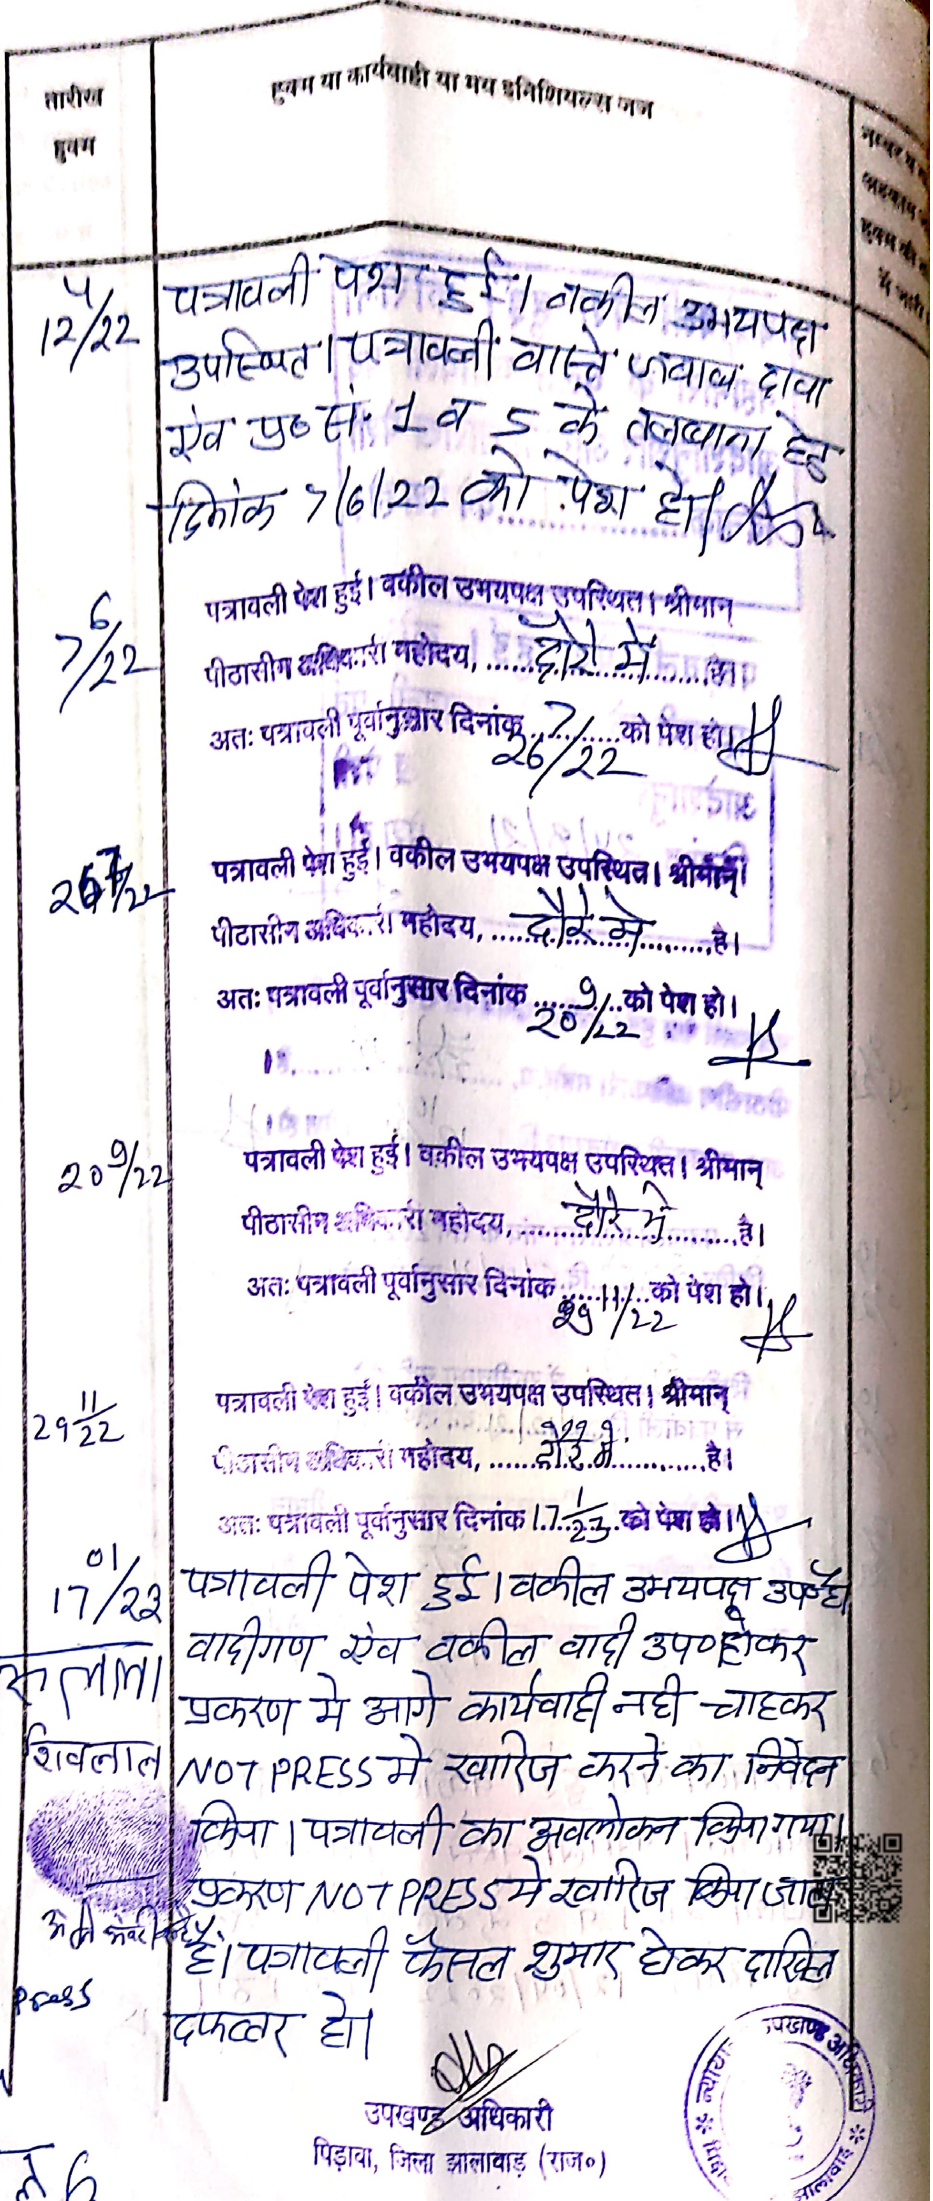 तारीख
हुक्म
हुक्म या कार्यवाही या मय इनिशियल्स जज
4
12/22
पत्रावली पेश हुई। वकील उभयपक्ष
उपस्थित। पत्रावली वास्ते जवाब दावा
एंव प्र० सं. 1 व 5 के तलबाना हेतु
दिनांक 7/6/22 को पेश हो।
6
7/22
पत्रावली पेश हुई। वकील उभयपक्ष उपस्थित। श्रीमान्
पीठासीन अधिकारी महोदय, ......दौरे में......है।
अतः पत्रावली पूर्वानुसार दिनांक 26/7/22 को पेश हो।
26 7/22
पत्रावली पेश हुई। वकील उभयपक्ष उपस्थित। श्रीमान्
पीठासीन अधिकारी महोदय, ......दौरे मे......है।
अतः पत्रावली पूर्वानुसार दिनांक 20 9/22 को पेश हो।
20 9/22
पत्रावली पेश हुई। वकील उभयपक्ष उपस्थित। श्रीमान्
पीठासीन अधिकारी महोदय, ......दौरे मे......है।
अतः पत्रावली पूर्वानुसार दिनांक 29 11/22 को पेश हो।
29 11/22
पत्रावली पेश हुई। वकील उभयपक्ष उपस्थित। श्रीमान्
पीठासीन अधिकारी महोदय, ......दौरे मे......है।
अतः पत्रावली पूर्वानुसार दिनांक 17 1/23 को पेश हो।
01
17/23
पत्रावली पेश हुई। वकील उभयपक्ष उप० है।
वादीगण एंव वकील वादी उप० होकर
प्रकरण मे आगे कार्यवाही नही चाहकर
NOT PRESS मे खारिज करने का निवेदन
किया। पत्रावली का अवलोकन किया गया।
प्रकरण NOT PRESS मे खारिज किया जाता
है। पत्रावली फैसल शुमार होकर दाखिल
दफ्तर हो।
शिवलाल
Press
उपखण्ड अधिकारी
पिड़ावा, जिला झालावाड़ (राज०)
उपखण्ड अधिकारी
झालावाड़